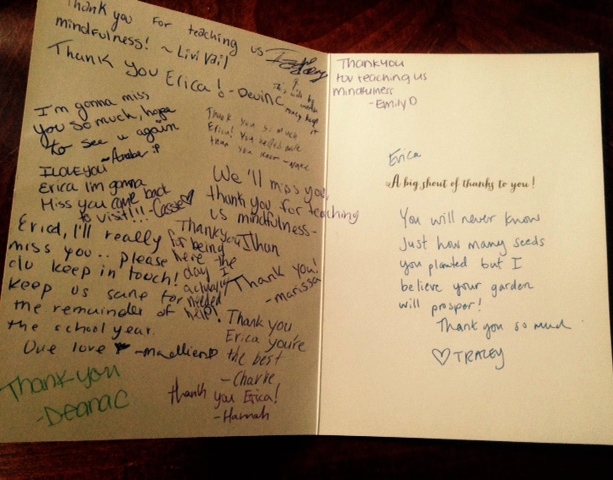 Thank you for teaching us
mindfulness! ~ Livi Vail
Thank you Erica! -Devin C
I'm gonna miss
you so much, hope
to see u again
I LOVE YOU
Erica I'm gonna
Miss you come back
to visit!!! -Cassie
Thank you so much
Erica! You helped more
than you know
We'll miss you,
thank you for teaching
us mindfulness-
Jhan
Erica, I'll really
miss you.. please
clu keep in touch!
keep us sane for
the remainder of
the school year.
One love
Thank you
for being
here the
day I
actually
needed
help!
Thank you!
-marissa
Thank you
Erica you're
the best
thank you Erica!
-Hannah
Thank you
-Deana C
Thank you
for teaching us
mindfulness
-Emily D
Erica
A big shout of thanks to you!
You will never know
Just how many seeds
you planted but I
believe your garden
will prosper!
Thank you so much
♡ TRACEY